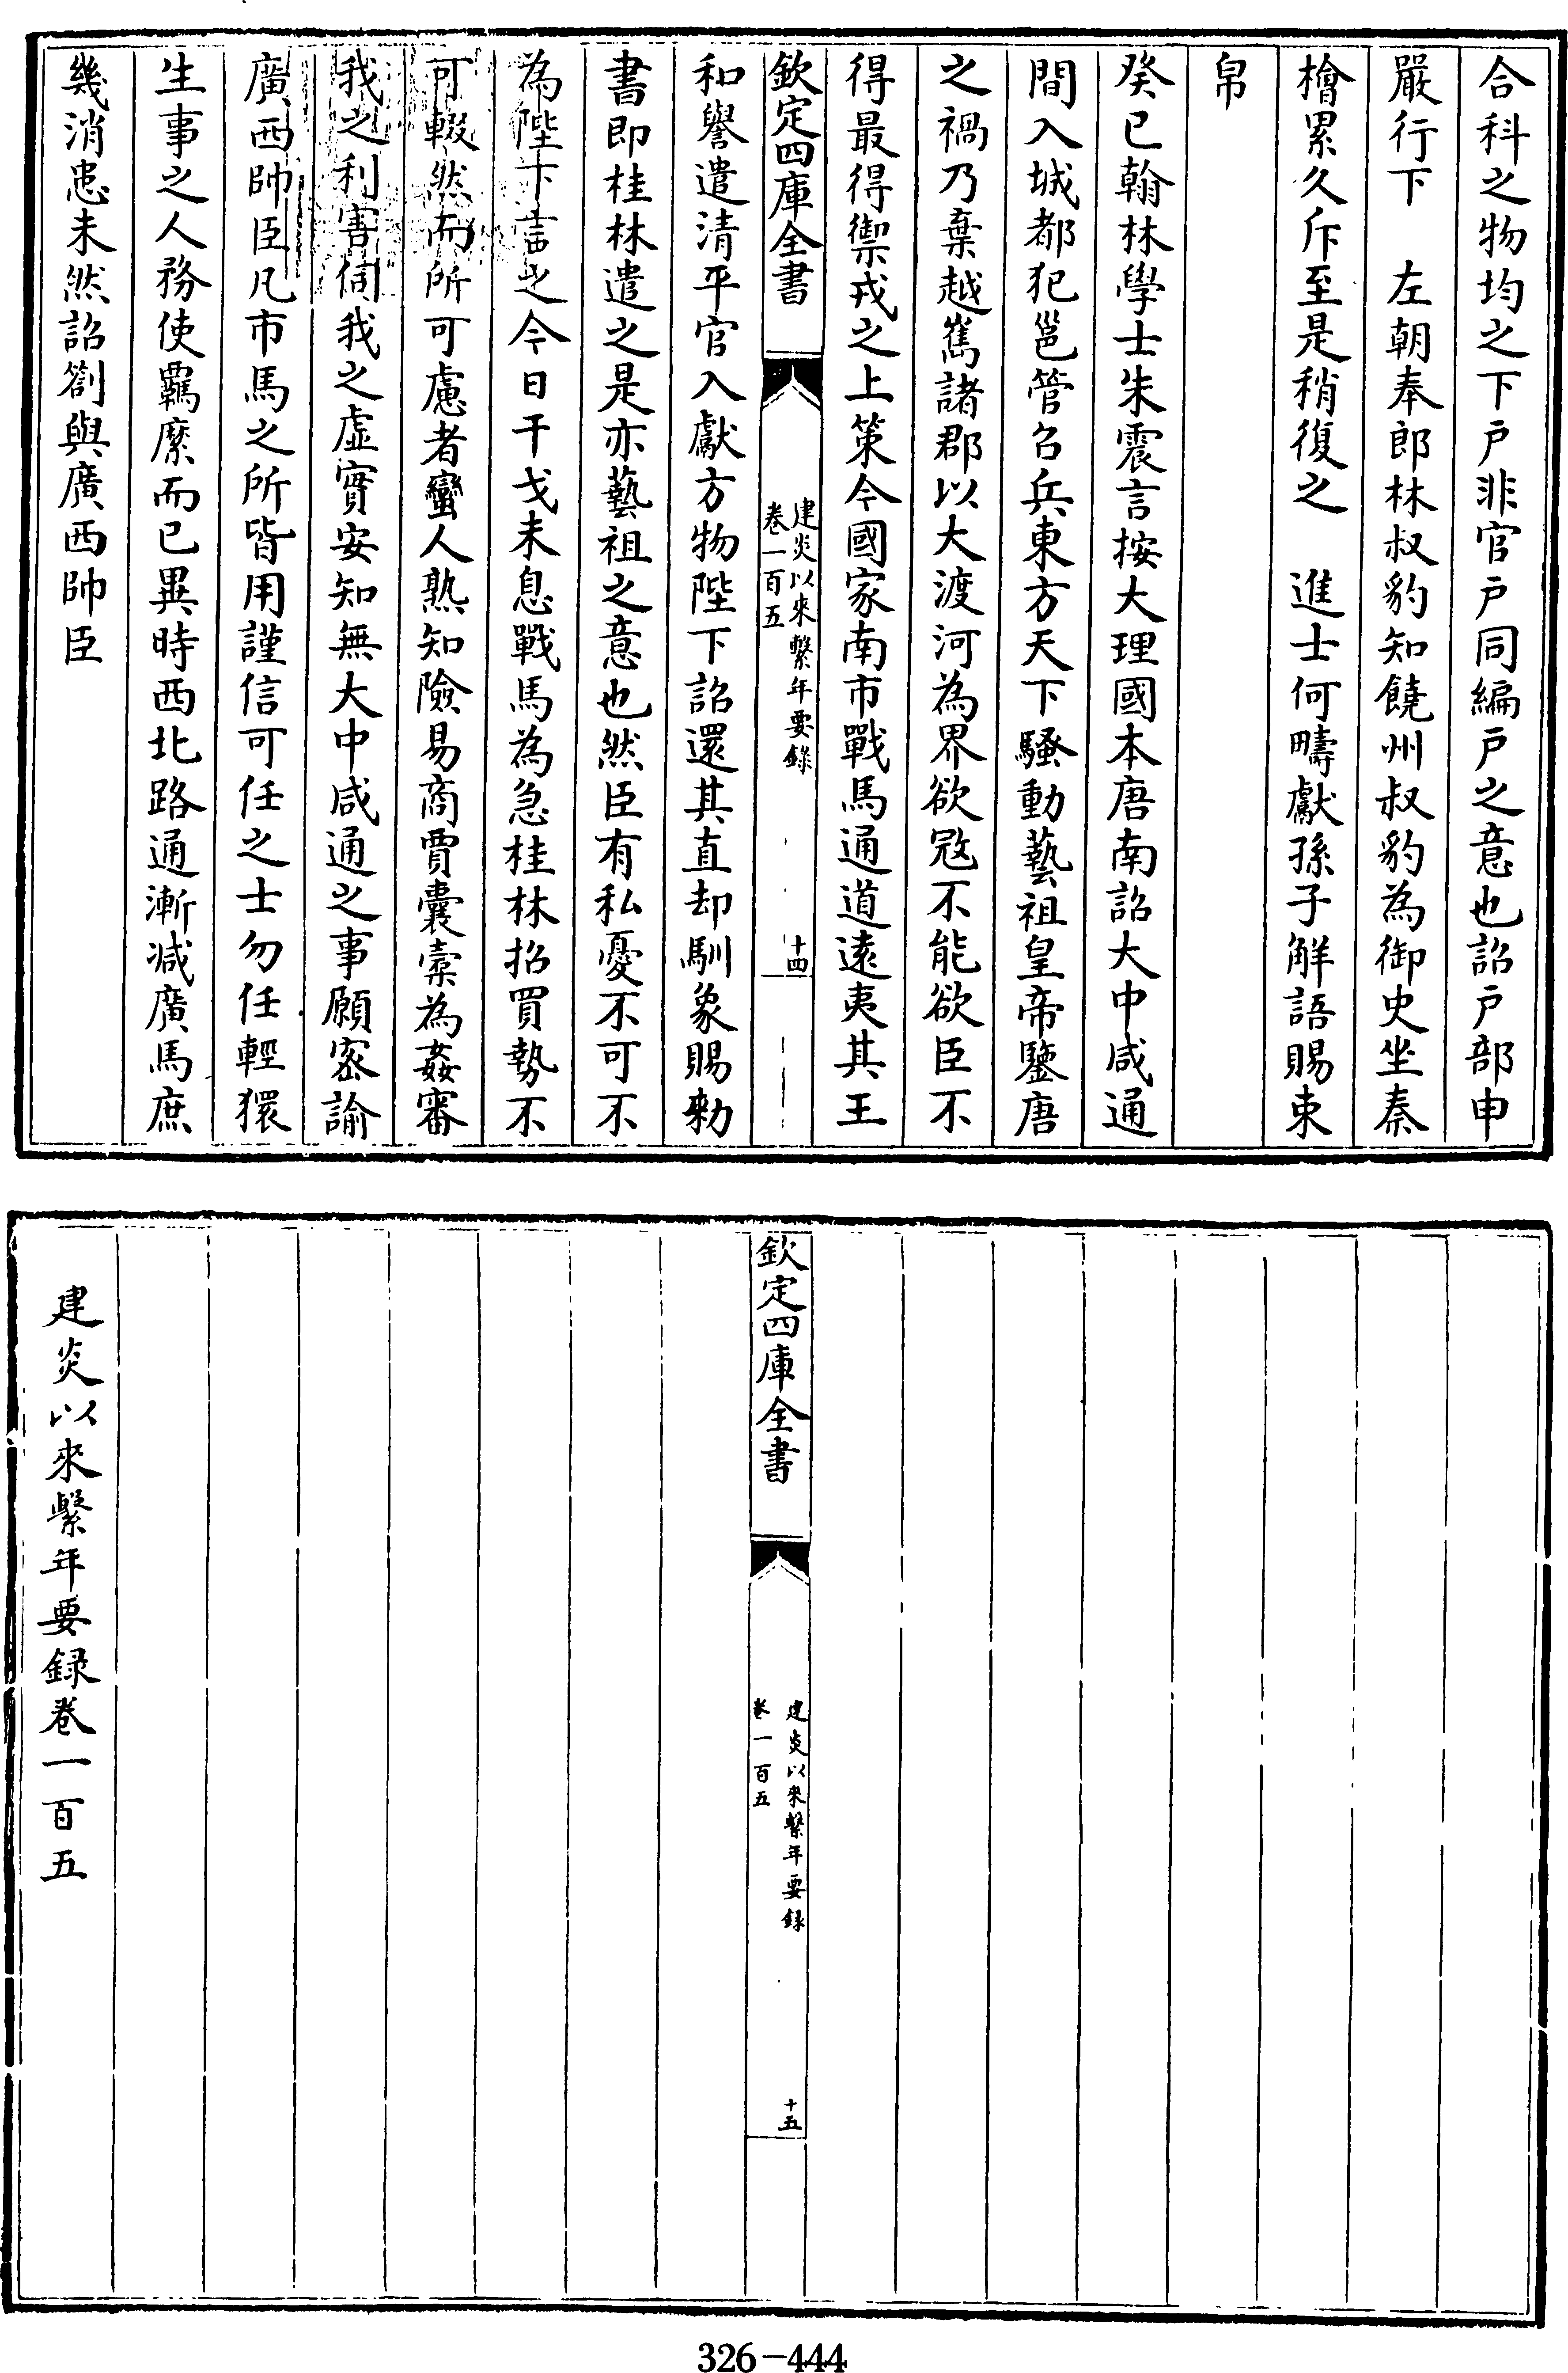 合科之物均之下戸非官戸同編戸之意也詔戸部申
嚴行下　左朝奉郎林叔豹知饒州叔豹為御史坐秦
檜累久斥至是稍復之　進士何疇獻孫子解語賜束
帛
癸巳翰林學士朱震言按大理國本唐南詔大中咸通
間入城都犯邕管召兵東方天下騷動藝祖皇帝鑒唐
之禍乃棄越嶲諸郡以大渡河為界欲寇不能欲臣不
得最得禦戎之上策今國家南市戰馬通道遠夷其王
欽定四庫全書
建炎以來繫年要錄
卷一百五
十四
和譽遣清平官入獻方物陛下詔還其直却馴象賜勅
書即桂林遣之是亦藝祖之意也然臣有私憂不可不
為陛下言之今日干戈未息戰馬為急桂林招買勢不
可輟然而所可慮者蠻人熟知險易商賈囊橐為姦審
我之利害伺我之虛實安知無大中咸通之事願密諭
廣西帥臣凡市馬之所皆用謹信可任之士勿任輕獧
生事之人務使羈縻而已異時西北路通漸減廣馬庶
幾消患未然詔劄與廣西帥臣
欽定四庫全書
建炎以來繫年要録
卷一百五
十五
建炎以來繫年要録卷一百五
326-444